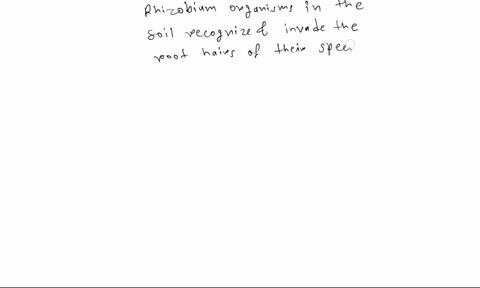 Rhizobium organisms in the
soil recognized invade the
root hairs of their speci